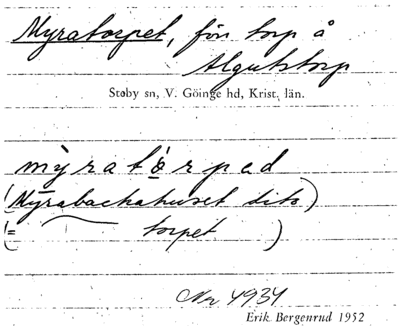 Myratorpet, förr torp å
Algutstorp
Stoby sn, V. Göinge hd, Krist. län.
mỳratò̱rpad
(Myrabackahuset dits)
(= torpet )
Nr 4934
Erik Bergenrud 1952